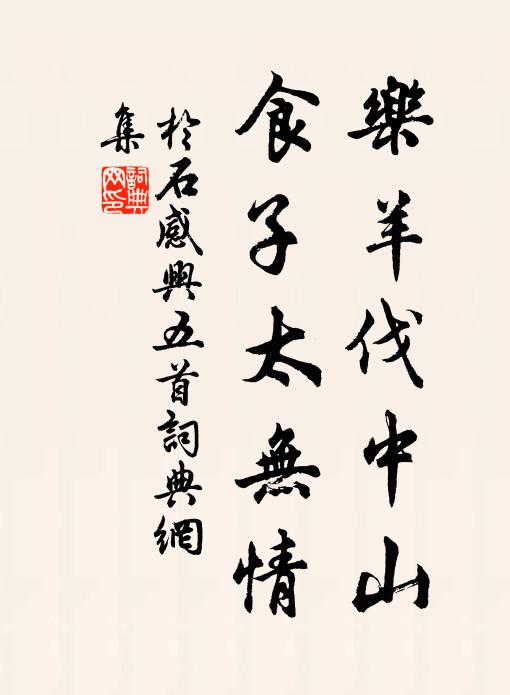 樂羊伐中山
食子太無情
於石感興五首詞典網
集
詞典網印